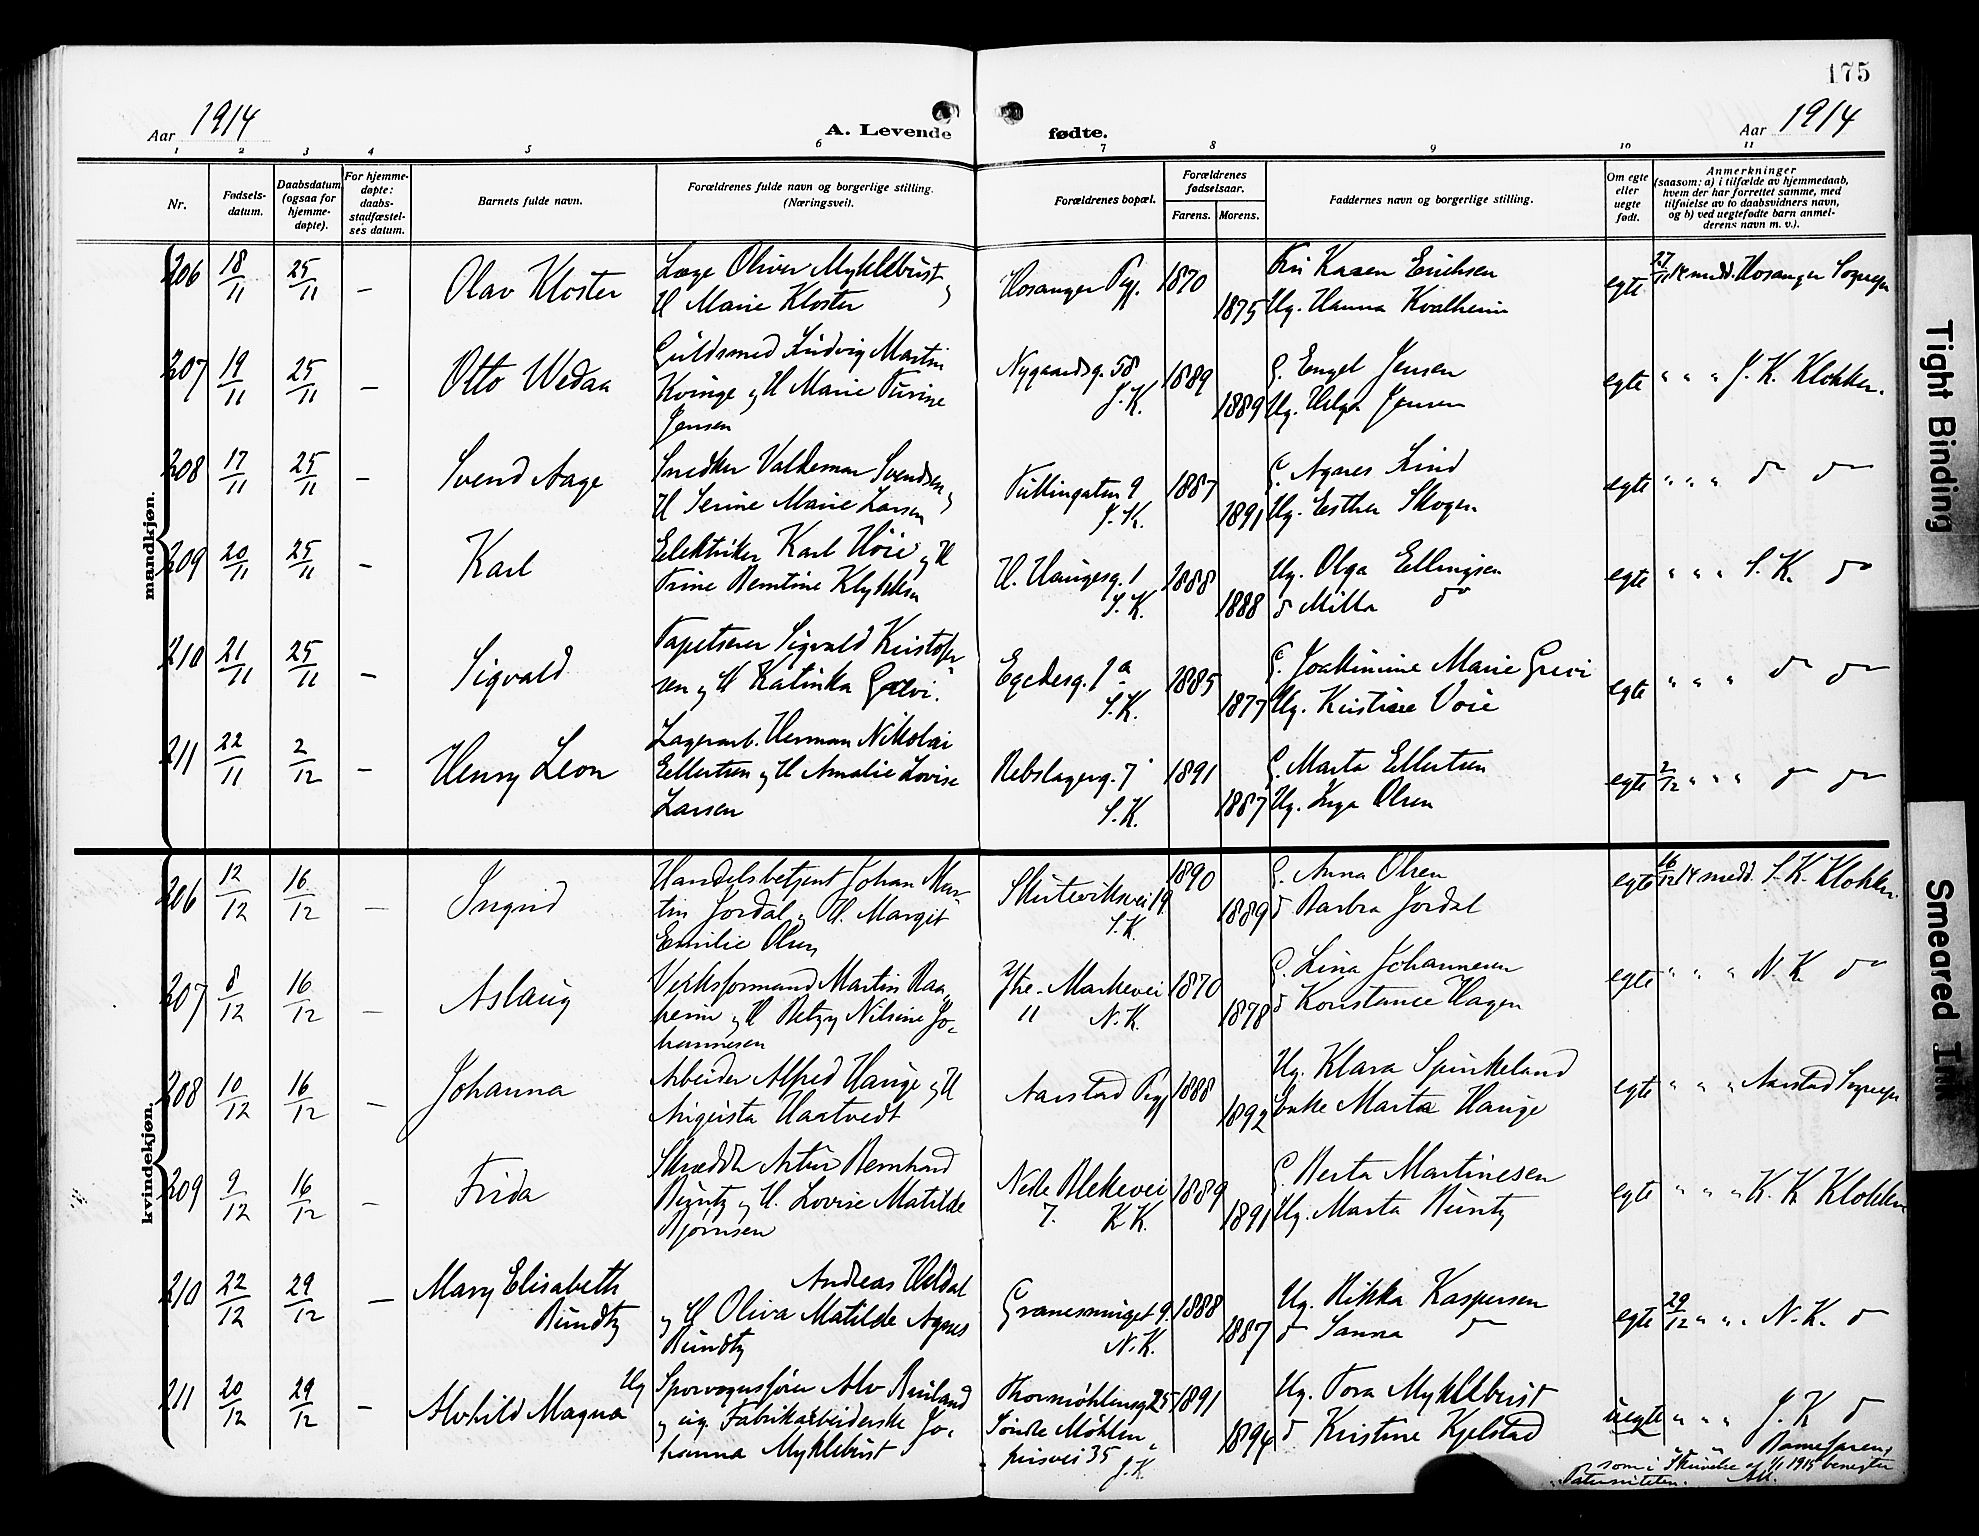 175
Aar 1914
A. Levende fødte.
Aar 1914
1 2 3 4 5 6 7 8 9 10 11
Nr.
Fødsels-
datum.
Daabsdatum
(ogsaa for
hjemme-
døpte).
For hjemme-
døpte:
daabs-
stadfæstel-
ses datum.
Barnets fulde navn.
Forældrenes fulde navn og borgerlige stilling.
(Næringsvei).
Forældrenes bopæl.
Forældrenes
fødselsaar.
Farens. Morens.
Faddernes navn og borgerlige stilling.
Om egte
eller
uegte
født.
Anmerkninger
(saasom: a) i tilfælde av hjemmedaab,
hvem der har forrettet samme, med
tilføielse av to daabsvidners navn,
og b) ved uegtefødte barn anmel-
derens navn m. v.).
mandkjøn.
206 18/11 25/11 — Olav Kloster
Læge Oliver Myklebust
H Marie Kloster
Hosanger Pgj. 1870 1875
Fru Karen Erichsen
Ug. Hanna Kvalheim
egte 27/11 medd. Hosanger Sogнepr
207 19/11 25/11 — Otto Wedaa
Guldsmed Ludvig Martin
Kvinge og H Marie Turine
Jensen
Nygaardsg. 58
J. K.
1889 1889
G. Engel Jensen
Ug. Helga Jensen
egte " " " J. K. Klokker.
208 17/11 25/11 — Svend Aage
Snedker Valdemar Svendsen
H Serine Marie Larsen
Tullingaten 9
J. K.
1887 1891
G. Agnes Lind
Ug. Esther Skogen
egte " " " do do
209 20/11 25/11 — Karl
Elektriker Karl Høie og H
Trine Berntine Klykken
H. Haugesg. 1
S. K.
1888 1888
Ug. Olga Ellingsen
do Milla do
egte " " " S. K. do
210 21/11 25/11 — Sigvald
Tapetserer Sigvald Kristofer-
sen og H Katinka Grevi.
Egedesg. 1a
S. K.
1885 1877
G. Joakimine Marie Grevi
Ug. Kristine Voie
egte " " " do do
211 22/11 2/12 — Henry Leon
Lagerarb. Herman Nikolai
Ellertsen og H Amalie Lovise
Larsen
Rebslagerg. 7
S. K.
1891 1887
G. Marta Ellertsen
Ug. Inga Olsen
egte 2/12 " " " do do
kvindekjøn.
206 12/12 16/12 — Ingrid
Handelsbetjent Johan Mar-
tin Jordal og H. Margit
Emilie Olsen
Skuteviksvei 19
S. K.
1890 1889
G. Anna Olsen
do Barbra Jordal
egte 16/12 medd. S. K. Klokker.
207 8/12 16/12 — Aslaug
Verksformand Martin Raa-
heim og H Betzy Nilsine Jo-
hannesen
Ytre-Markevei
11 N. K.
1870 1878
G. Lina Johannesen
do Konstance Hagen
egte " " " N. K do
208 10/12 16/12 — Johanna
Arbeider Alfred Hauge og H
Augusta Haatvedt
Aarstad Pgj
1888 1892
Ug. Klara Spinkeland
Enke Marta Hauge
egte " " " Aarstad Sognepr
209 9/12 16/12 — Frida
Skrædder Artur Bernhard
Buntz og H. Lovise Matilde
Bjørnsen
Nedre Blekevei
7. K K.
1889 1891
G. Berta Martinesen
Ug. Marta Buntz
egte " " " K. K Klokker
210 22/12 29/12 — Mary Elisabeth
Bundtz
Andreas Heldal
og H Oliva Matilde Agnes
Bundtz
Granesmuget 9.
N. K.
1888 1887
Ug. Rikka Kaspersen
do Sanna do
egte 29/12 " " " N. K. do
211 20/12 29/12 — Alvhild Magna
Ug Sporvognsfører Alv Ruland
og ug. Fabrikarbeiderske Jo-
hanna Myklebust
Thormøhlensg. 25
Søndre Møhlen-
prisvei 35 J. K.
1891 1894
Ug. Tora Myklebust
do Kristine Kjelstad
uegte " " " J. K do
Barnefaren,
som i Skrivelse af 1/1 1915 benegter
Paterniteten.
Tight Binding
Smeared Ink